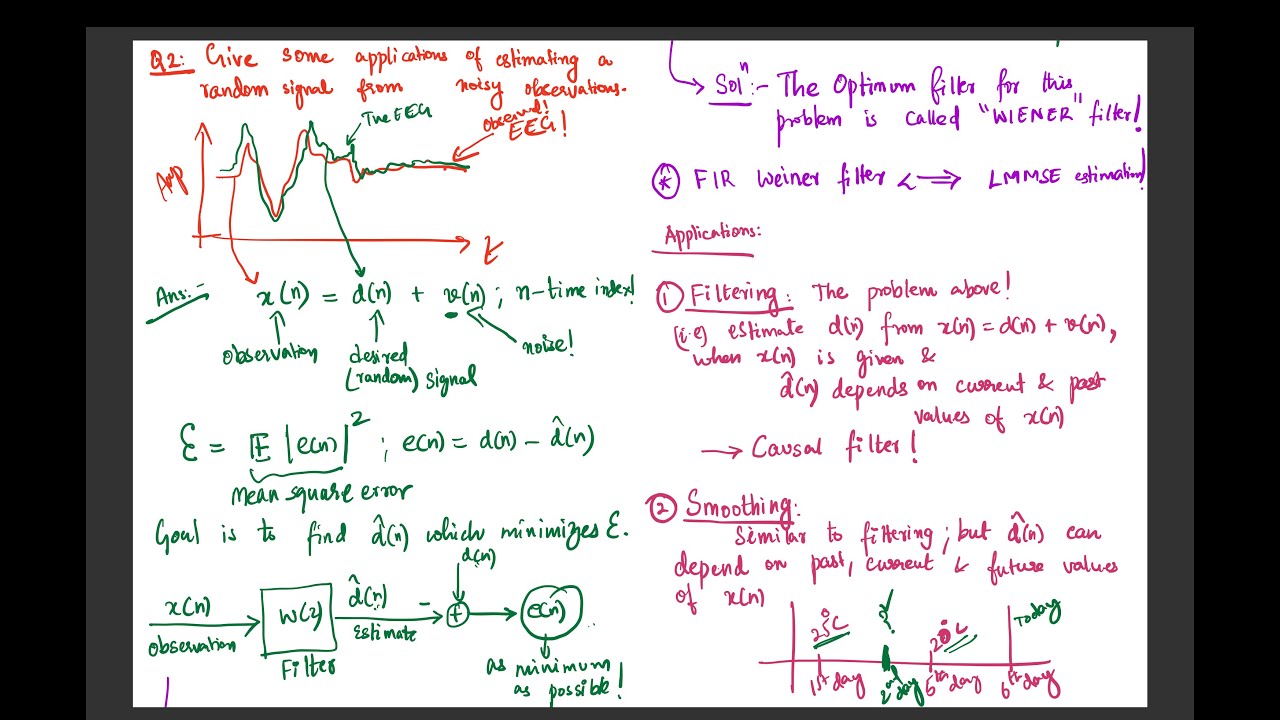 Q2: Give some applications of estimating a
random signal from noisy observations.
The EEG
Observed!
EEG!
Amp
t
Ans:-
x(n) = d(n) + v(n); n-time index!
observation
desired
(random) signal
noise!
ℰ = 𝔼 |e(n)|²; e(n) = d(n) - d̂(n)
Mean square error
Goal is to find d̂(n) which minimizes ℰ.
d(n)
x(n)
observation
W(z)
Filter
d̂(n)
Estimate
-
+
e(n)
as minimum
as possible!
Solⁿ:- The Optimum filter for this
problem is called "WIENER" filter!
* FIR Weiner filter <=> LMMSE estimation!
Applications:
1 Filtering: The problem above!
(i.e) estimate d(n) from x(n) = d(n) + v(n),
when x(n) is given &
d̂(n) depends on current & past
values of x(n)
→ Causal filter!
2 Smoothing:
Similar to filtering; but d̂(n) can
depend on past, current & future values
of x(n)
?
Today
1st day
2nd day
5th day
6th day